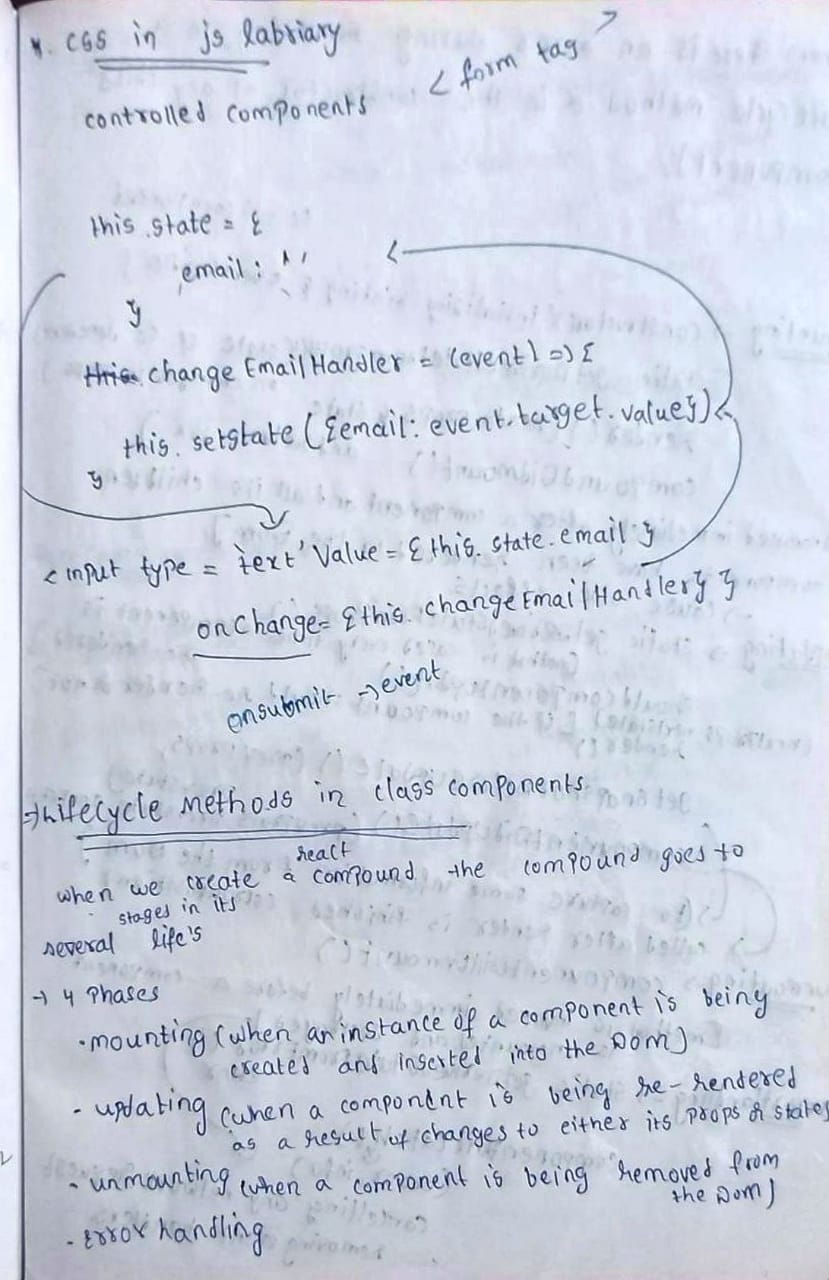 * CSS in js labriary
< form tag >
controlled components
this.state = {
email: ''
}
this. change Email Handler = (event) => {
this. setstate ({email: event.target.value})
}
< input type = 'text' Value = { this. state. email }
onchange= {this. changeEmailHandler} }
onsubmit → event
⇒ Lifecycle Methods in class components
react
when we create a compound the compound goes to
stages in its
several life's
→ 4 Phases
• mounting (when an instance of a component is being
created and inserted into the Dom)
- updating (when a component is being re-rendered
as a result of changes to either its props or states
- unmounting (when a component is being removed from
the Dom)
- Error handling